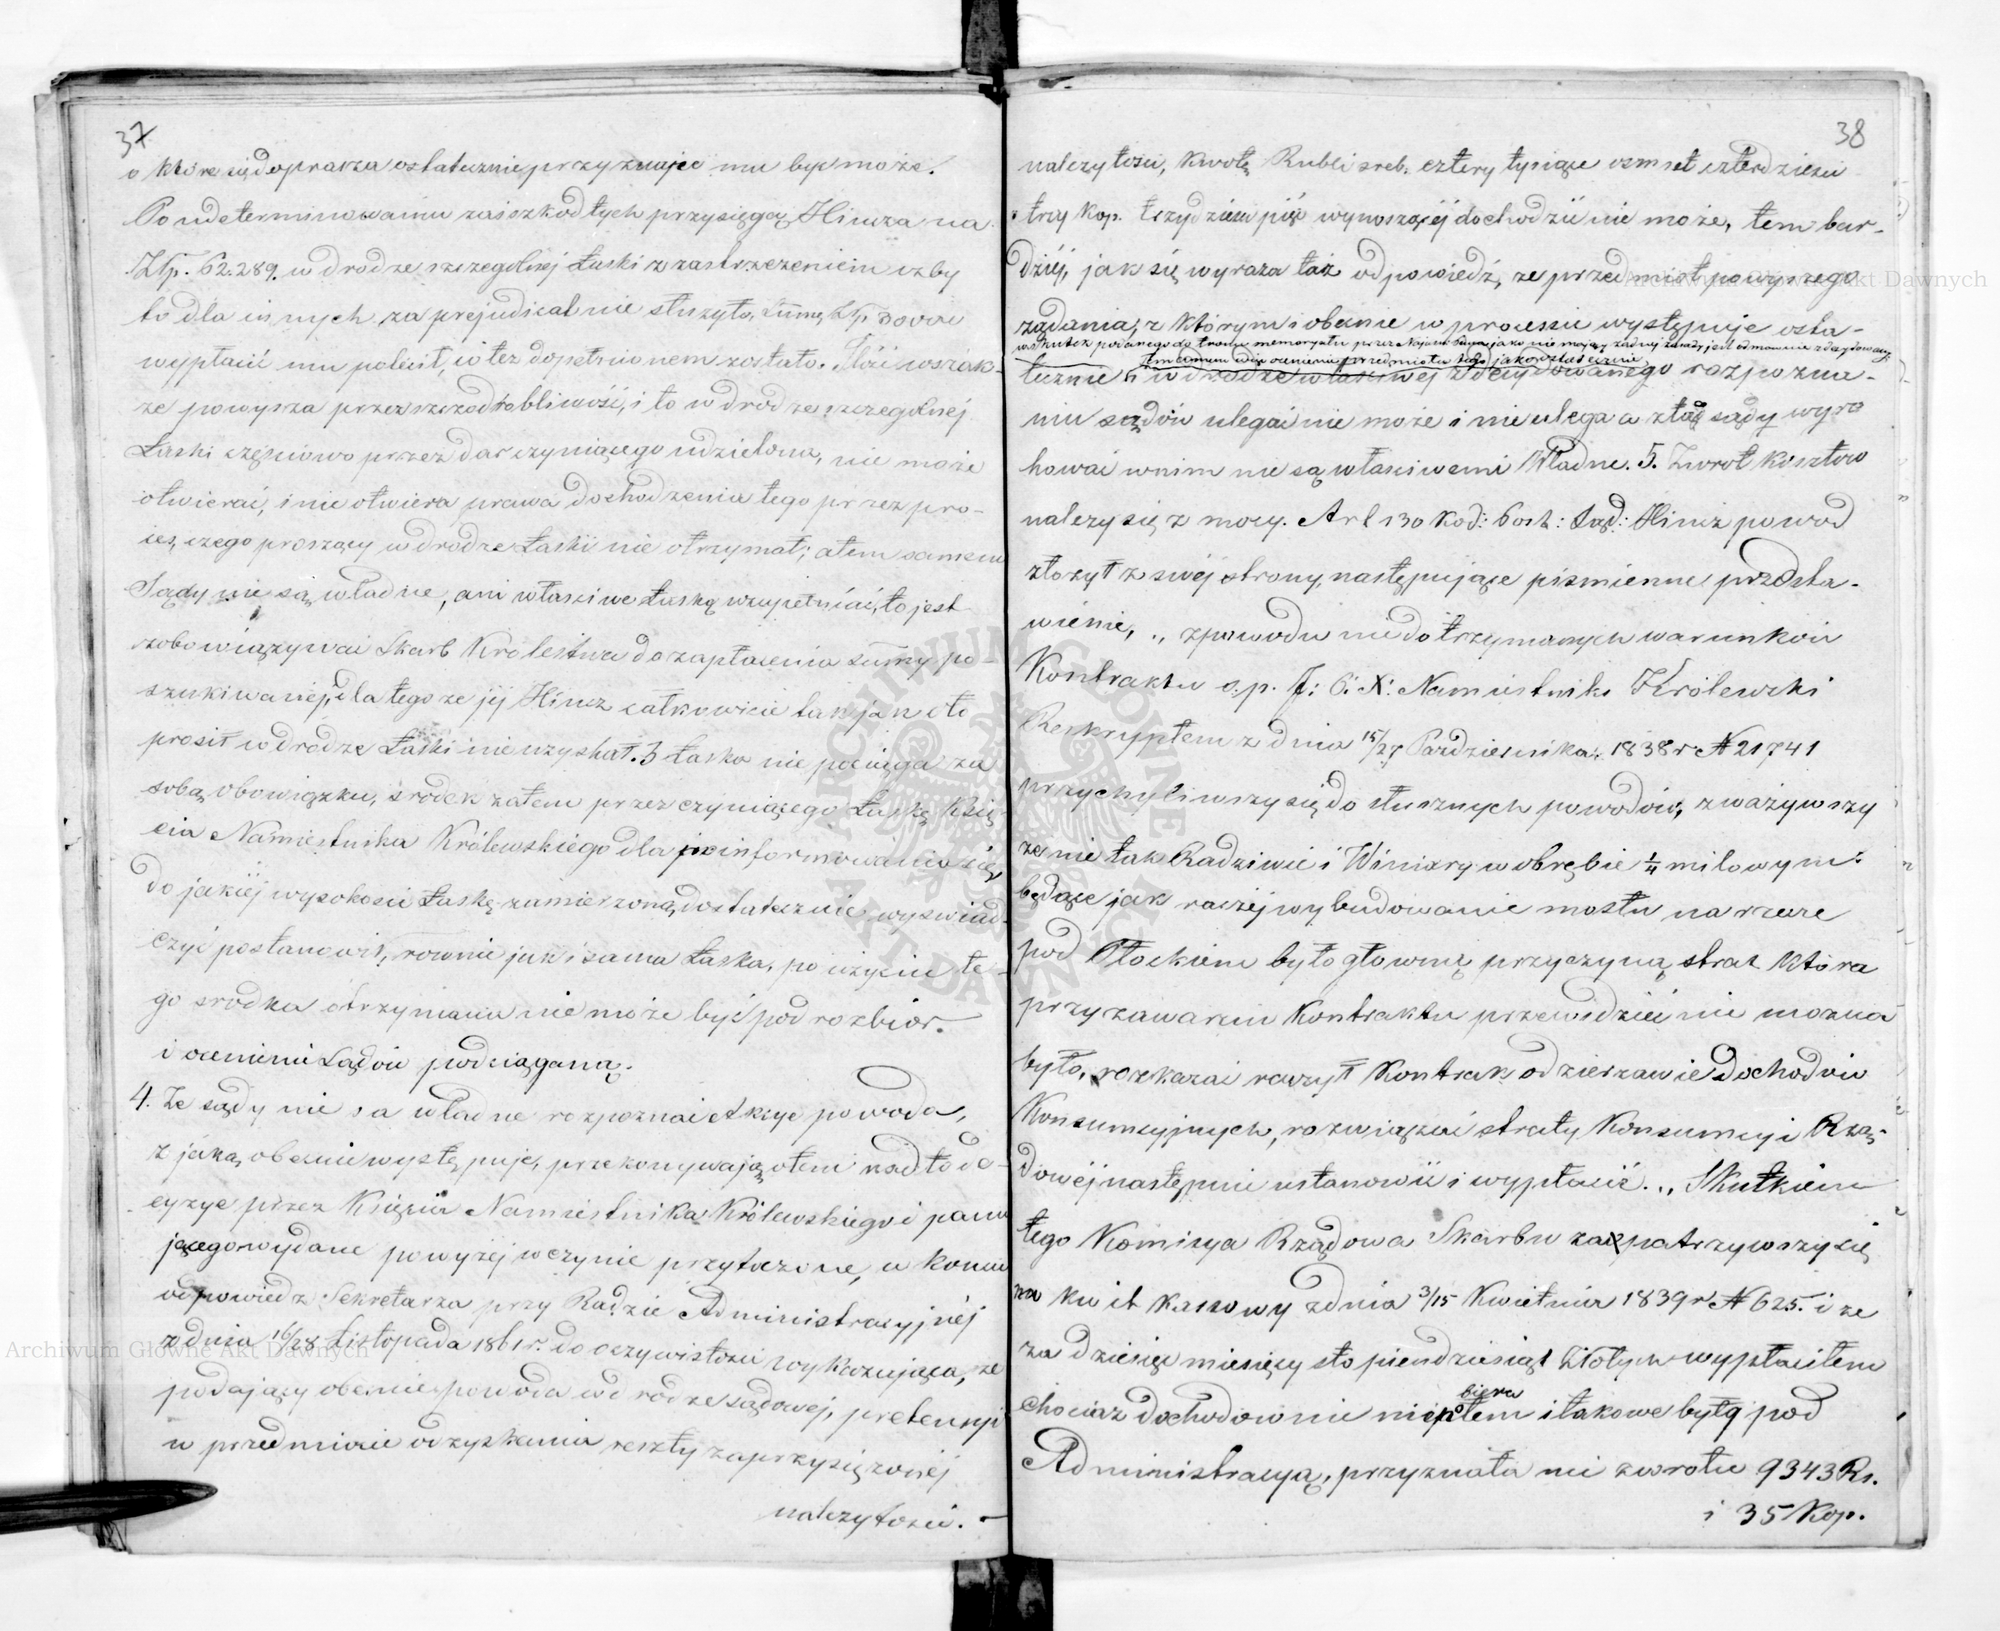 37
o które się doprasza ostatecznie przyznajec mu być może.
Po udeterminowaniu zaś szkod tych przysięgą Hincza na
Złp. 62.289. w drodze szczególnej Łaski z zastrzeżeniem iżby
to dla innych za prejudicat nie służyło, Summę Złp 30000
wypłacić mu polecił, co też dopełnionem zostało. Ilość wszak-
że powyższa przez szczodrobliwość, i to w drodze szczególnej
Łaski częściowo przez darczyniącego udzielona, nie może
otwierać, i nie otwiera prawa dochodzenia tego przez pro-
ces, czego proszący w drodze Łaski nie otrzymał; a tem samem
Sądy nie są władne, ani właściwe Łaskę wzupełniać, to jest
zobowiązywać Skarb Królestwa do zapłacenia summy po-
szukiwanej, dla tego że jej Hincz całkowicie tak jak o to
prosił w drodze Łaski nie uzyskał. 3 Łaska nie pociąga za
sobą obowiązku, środek zatem przez czyniącego Łaskę Księ
cia Namiestnika Królewskiego dla poinformowania się,
do jakiej wysokości Łaskę zamierzoną dostatecznie wyświad-
czyć postanowił, rownie jak i sama Łaska, po użyciu te-
go srodka otrzymana nie może być pod rozbior.
i ocenienie Sądów podciąganą.
4. Że sądy nie są władne rozpoznać Akcye powoda,
z jaką obecnie występuje, przekonywają o tem nadto de-
cyzye przez Księcia Namiestnika Królewskiego i panu
jącego wydane powyżej w czynie przytoczone, w koncu
odpowiedz Sekretarza przy Radzie Administracyjnej
z dnia 16/28 Listopada 1861 r. do oczywistości wykazująca, że
podający obecnie powoda w drodze sądowej, pretensyi
w przedmiocie odzyskania reszty zaprzysiężonej
należytości. -
38
należytości, Kwotę Rubli sreb. cztery tysiące osmset czterdzieści
trzy kop. trzydzieści pięć wynoszącej dochodzić nie może, tem bar-
dziej, jak się wyraża taż odpowiedź, że przedmiot powyższego
żądania, z którym i obecnie w procesie występuje osta-
wskutek podanego do tronu memoryału przez Najjaśn: Pana jako nie mający żadnej zasady, jest odmownie zdecydowany
tecznie i w drodze właściwej zdecydowanego rozpozna-
niu sądów ulegać nie może i nie ulega a ztąd sądy wyro
kować w nim nie są właściwemi Władne. 5. Zwrot kosztów
należy się z mocy. Art 130 Kod: Post: Sąd: Hincz powod
złożył z swej strony następujące piśmienne przedsta-
wienie, „ z powodu niedotrzymanych warunków
Kontraktu s.p. J: O: X: Namiestnik Królewski
Reskryptem z dnia 15/27 Pazdziernika 1838 r № 21741
przychyliwszy się do słusznych powodów, zważywszy
że nie tak Radziwie i Winiary w obrębie ¼ milowym
będące jak raczej wybudowanie mostu na rzece
pod Płockiem było głowną przyczyną strat która
przy zawarciu Kontraktu przewidzieć nie można
było, rozkazać raczył Kontrakt o dzierzawie dochodów
Konsumcyjnych, rozwiązać straty Konsumcyi Rzą-
dowej następnie ustanowić i wypłacić. „ Skutkiem
tego Komisya Rządowa Skarbu zaopatrzywszy się
na kwit kassowy z dnia 3/15 Kwietnia 1839 r № 625. i że
za dziesięć miesięcy sto piendziesiąt Złotych wypłaciłem
chociaż dochodów nie niepobierałem i takowe były pod
Administracyą, przyznała mi zwrotu 9343 Rs.
i 35 Kop.